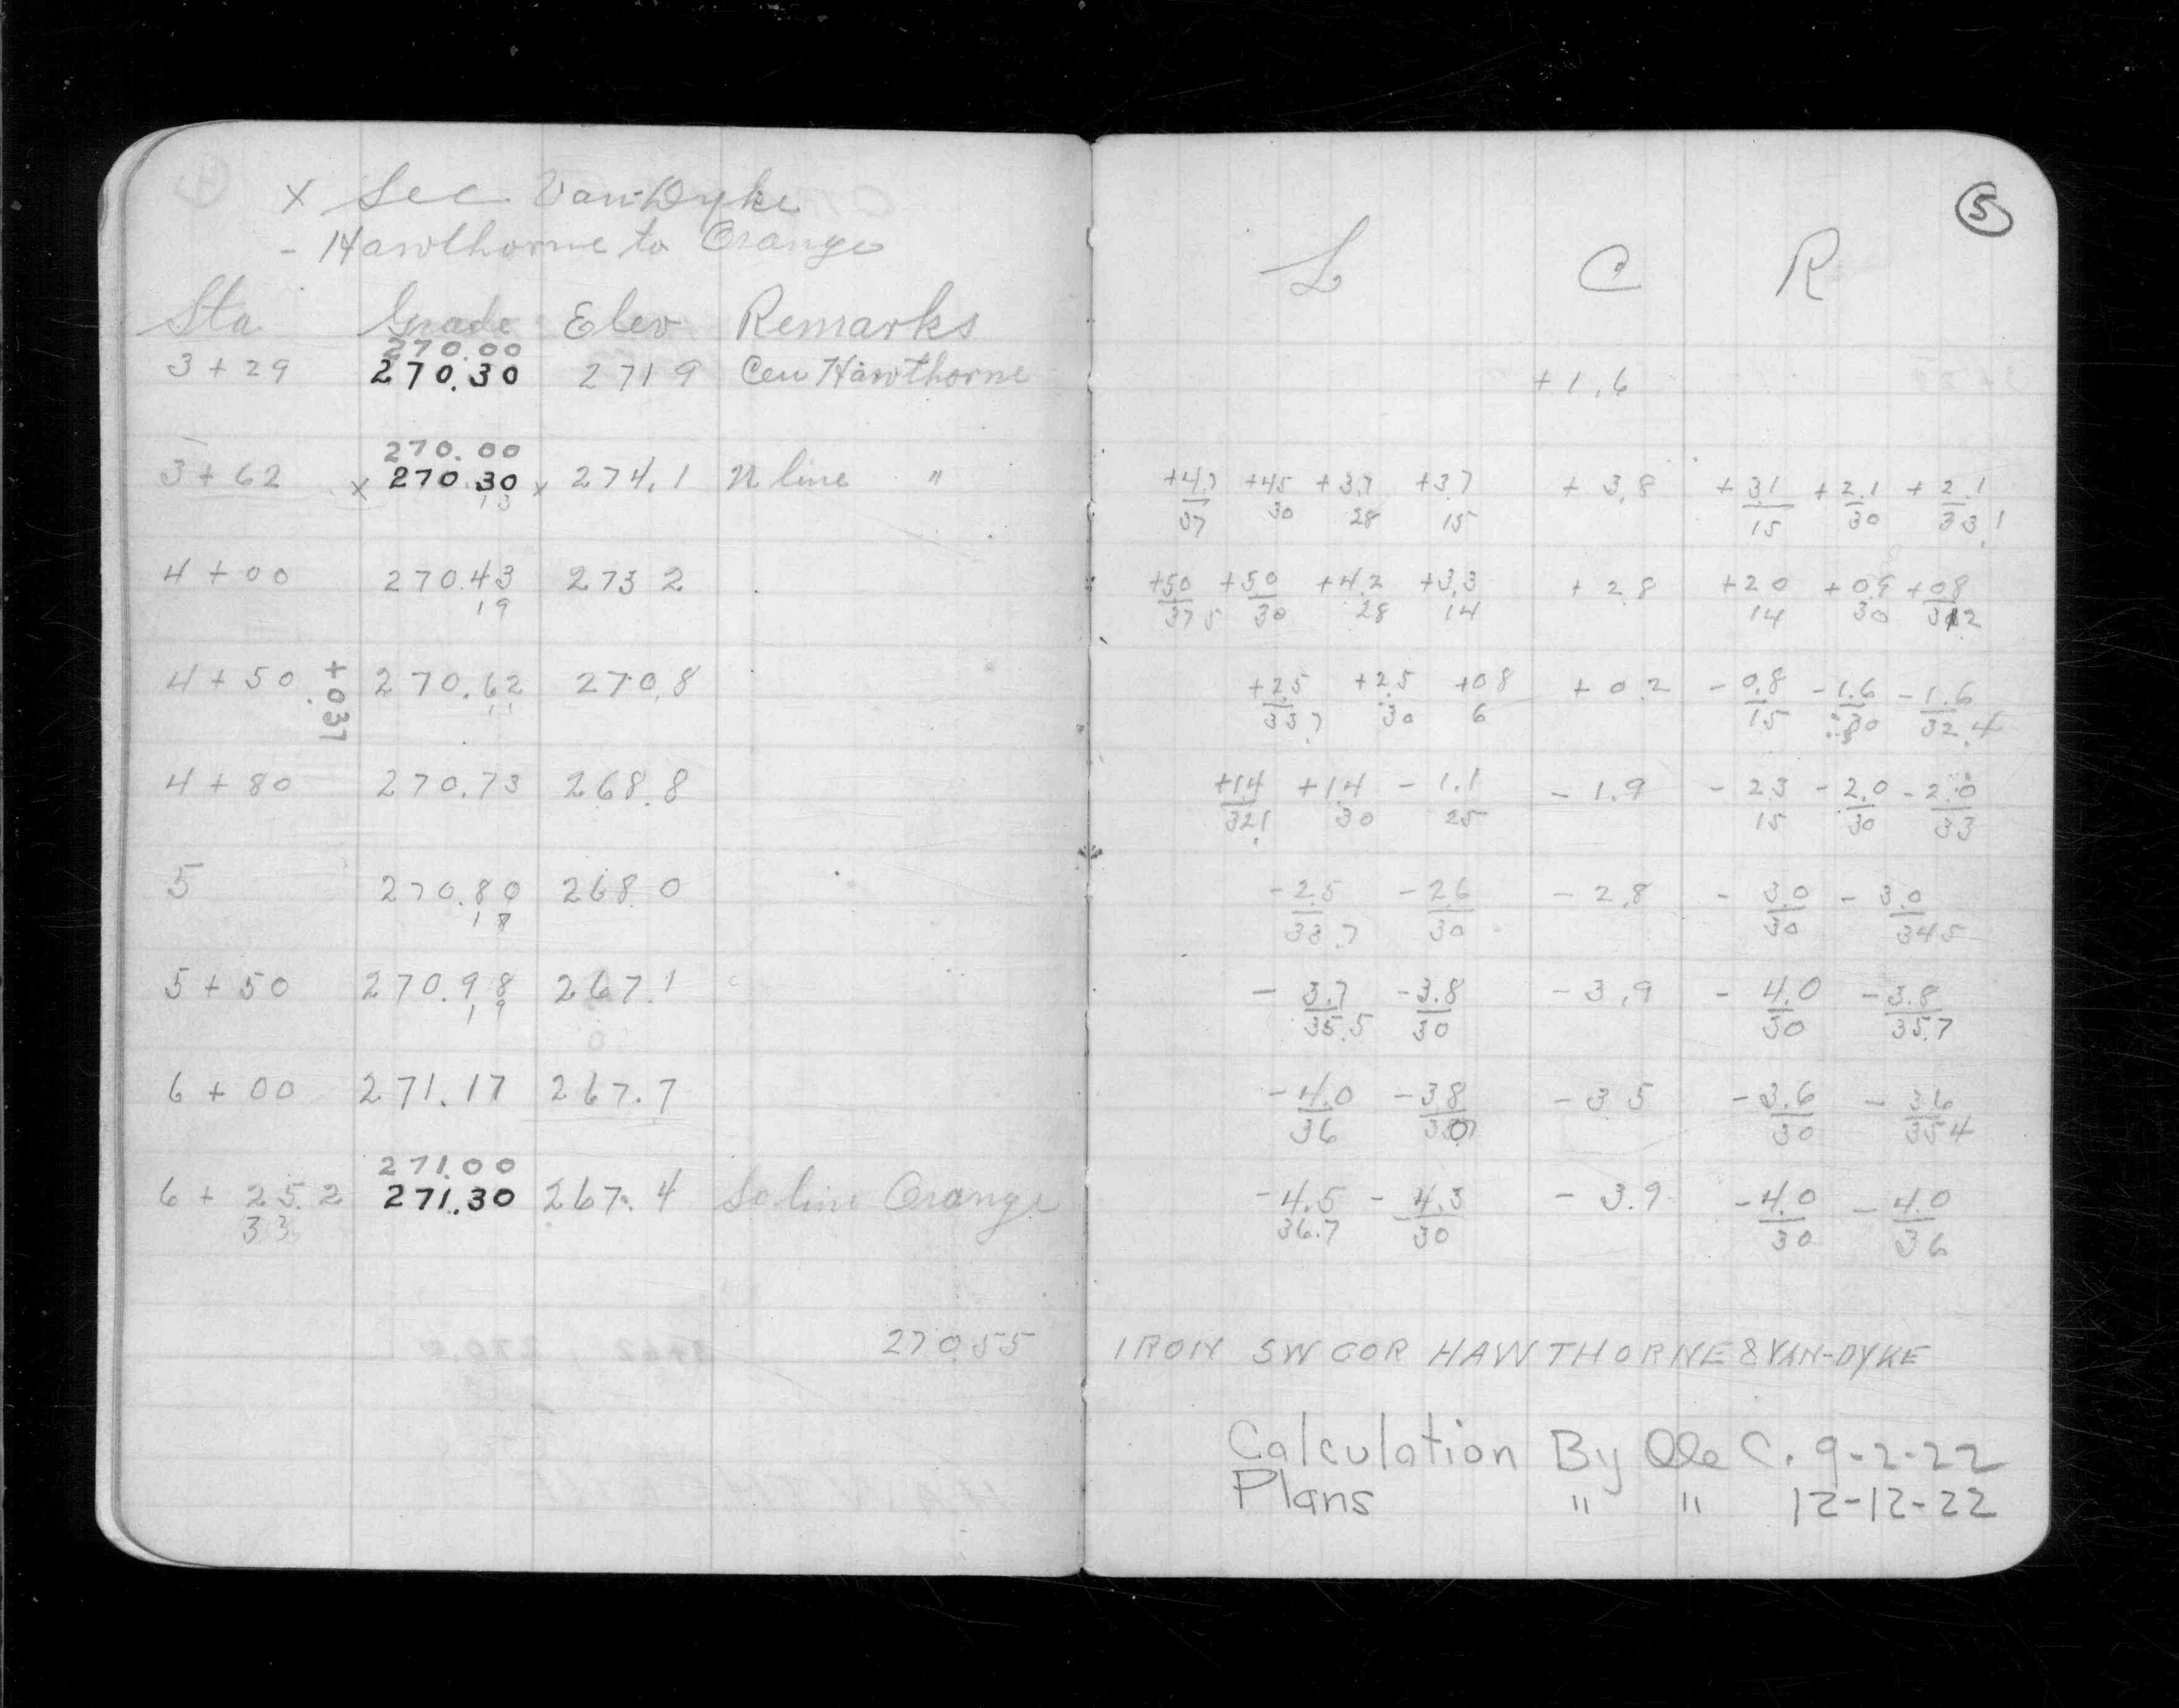 x Sec Van-Dyke
- Hawthorne to Orange
5
L C R
Sta Grade Elev Remarks
270.00
3+29 270.30 271 9 Cen Hawthorne +1.6
270.00
3+62 x 270.30 x 274.1 N line " +4.7 +4.5 +3.7 +3.7 +3.8 +3.1 +2.1 +2.1
13 37 30 28 15 15 30 33.1
4+00 270.43 273 2 +5.0 +5.0 +4.2 +3.3 +2.8 +2 0 +0.9 +0.8
19 37 5 30 28 14 14 30 32
4+50 270.62 270.8 +2.5 +2.5 +0 8 +0.2 -0.8 -1.6 -1.6
+.031
11 33.7 30 6 15 30 32.4
4+80 270.73 268.8 +1.4 +1.4 -1.1 -1.9 -2.3 -2.0 -2.0
32.1 30 25 15 30 33
5 270.80 268.0 -2.5 -2.6 -2.8 -3.0 -3.0
18 33.7 30 30 34 5
5+50 270.98 267.1 -3.7 -3.8 -3.9 -4.0 -3.8
19 35.5 30 30 35.7
6+00 271.17 267.7 -4.0 -3.8 -3 5 -3.6 -3.6
36 30 30 35 4
271.00
6+25.2 271.30 267.4 So line Orange -4.5 -4.3 -3.9 -4.0 -4.0
33 36.7 30 30 36
270.55 IRON SW COR HAWTHORNE & VAN-DYKE
Calculation By Ole C. 9-2-22
Plans " " 12-12-22